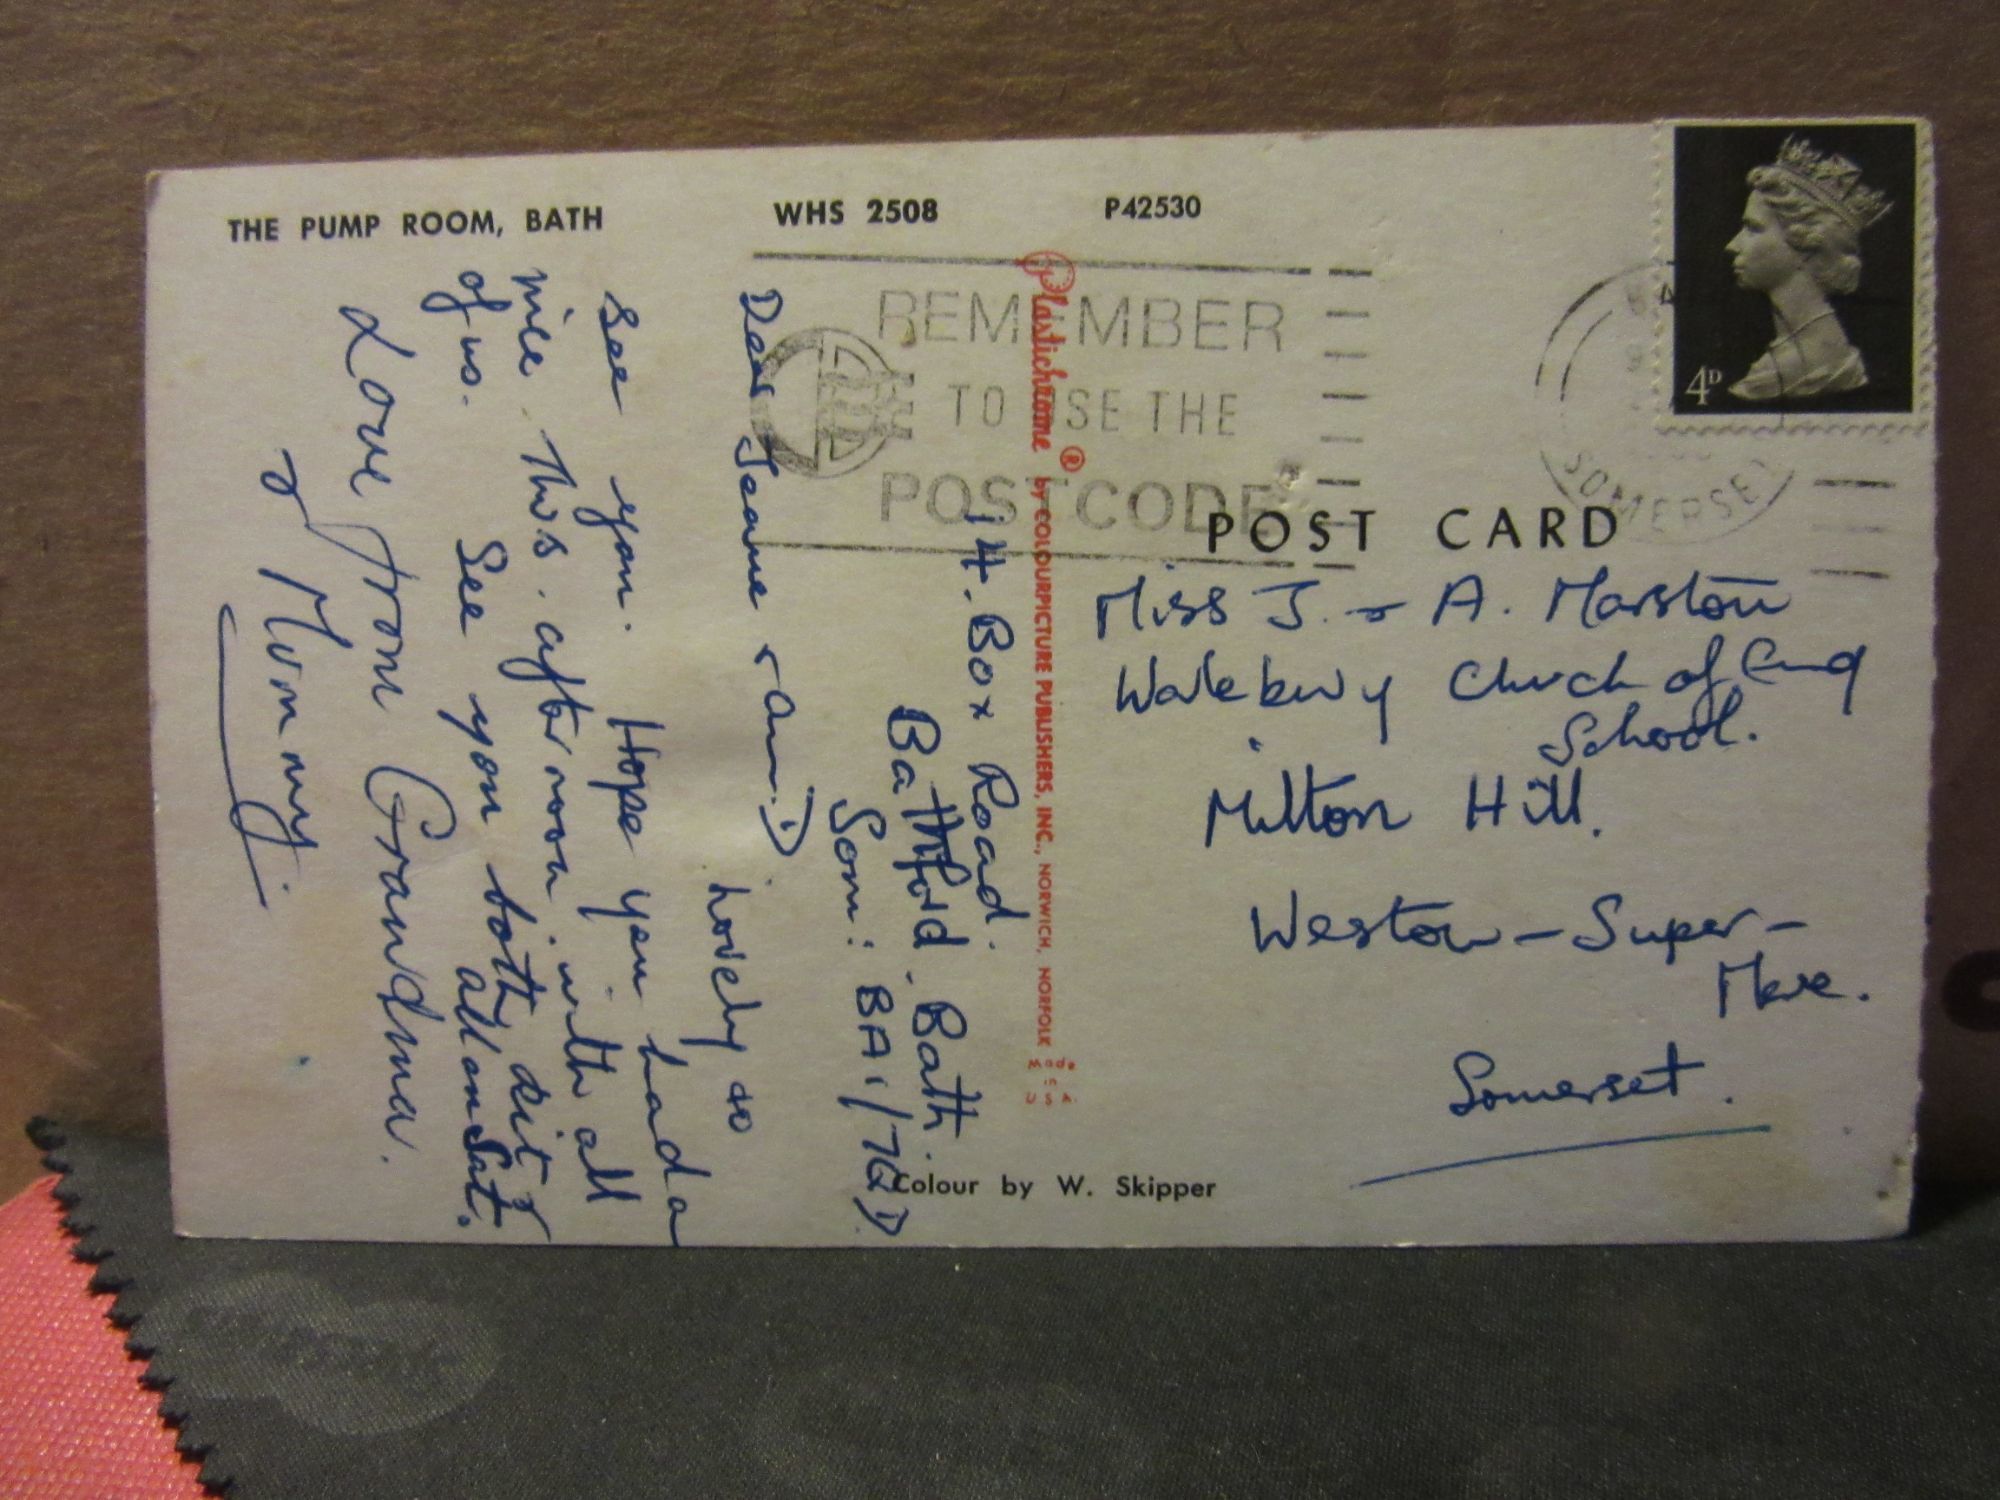 THE PUMP ROOM, BATH
WHS 2508
P42530
REMEMBER
TO USE THE
POSTCODE
SOMERSET
4D
POST CARD
Plastichrome ® by COLOURPICTURE PUBLISHERS, INC., NORWICH, NORFOLK
Made
in
U S A.
Colour by W. Skipper
14. Box Road.
Bathford. Bath.
Som: BA1/7QD.
Dear Jeanne & Ann. Lovely to
see you. Hope you had a
nice this. afternoon. with all
of us. See you both
all on Sat.
Love from Grandma.
& Mummy.
Miss J. & A. Marston
Church of Eng
School.
Milton Hill.
Weston-Super-
Mare.
Somerset.